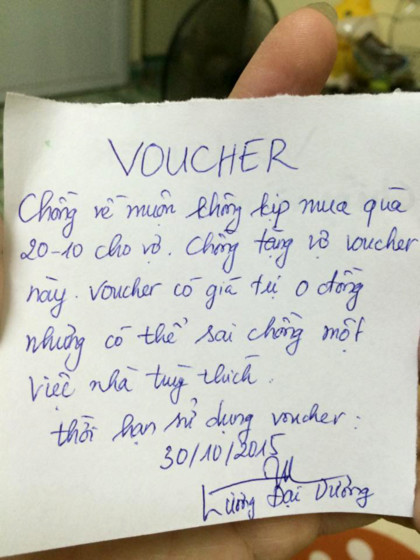 VOUCHER
Chồng về muộn không kịp mua quà
20-10 cho vợ. Chồng tặng vợ voucher
này. Voucher có giá trị 0 đồng
nhưng có thể sai chồng một
việc nhà tuỳ thích.
thời hạn sử dụng voucher:
30/10/2015
Lương Đại Dương